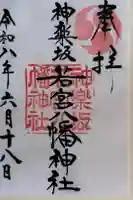 奉拝
神楽坂若宮八幡神社
神楽坂
若宮八
幡神社
令和八年六月十八日